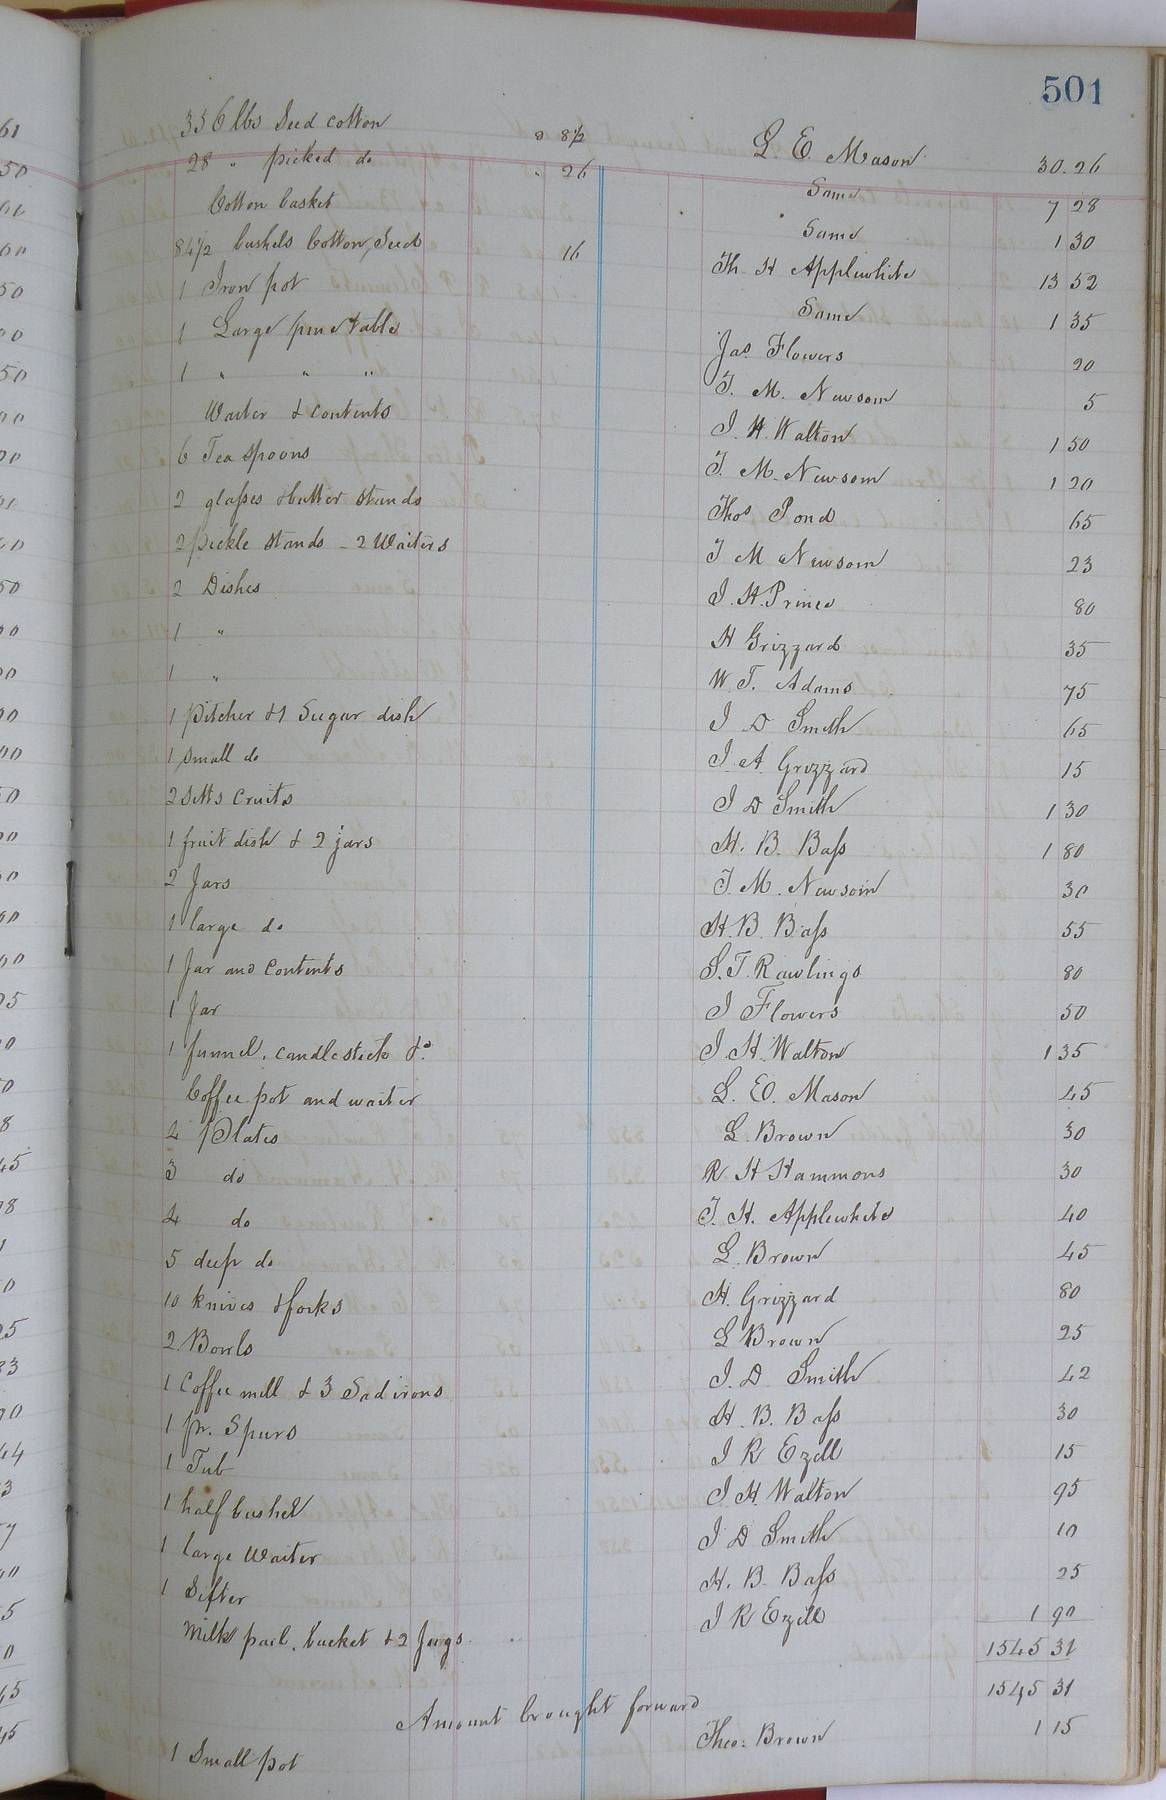 501
336 lbs Seed cotton @ 8 1/2 L. E. Mason 30.26
28 " picked do " 26 Same 7 28
Cotton basket Same 1 30
84 1/2 bushels Cotton Seed 16 Th. H Applewhite 13 52
1 Iron pot Same 1 35
1 Large pine table Jas Flowers 20
1 " " " T. M. Newsom 5
Waiter & contents J. H. Walton 1 50
6 Tea Spoons T. M. Newsom 1 20
2 glasses & butter stands Thos Pond 65
2 pickle stands - 2 Waiters T M Newsom 23
2 Dishes J. H. Prince 80
1 " H Grizzard 35
1 " W. T. Adams 75
1 pitcher & 1 Sugar dish J D Smith 65
1 small do J. A. Grizzard 15
2 Setts Cruits J D Smith 1 30
1 fruit dish & 2 jars H. B. Bass 1 80
2 Jars T. M. Newsom 30
1 large do H. B. Bass 55
1 Jar and Contents S. T. Rawlings 80
1 Jar J Flowers 50
1 funnel, candlestick &c J. H. Walton 1 35
Coffee pot and waiter L. E. Mason 45
4 Plates L. Brown 30
3 do R H Hammons 30
4 do T. H. Applewhite 40
5 deep do L. Brown 45
10 Knives & forks H. Grizzard 80
2 Bowls L Brown 25
1 Coffee mill & 3 Sad irons J. D Smith 42
1 pr. Spurs H. B. Bass 30
1 Tub J R Ezell 15
1 half bushel J H Walton 95
1 large Waiter J D Smith 10
1 Sifter H. B. Bass 25
Milk pail, bucket & 2 Jugs J R Ezell 1 90
1545 31
Amount brought forward 1545 31
1 Small pot Theo: Brown 1 15